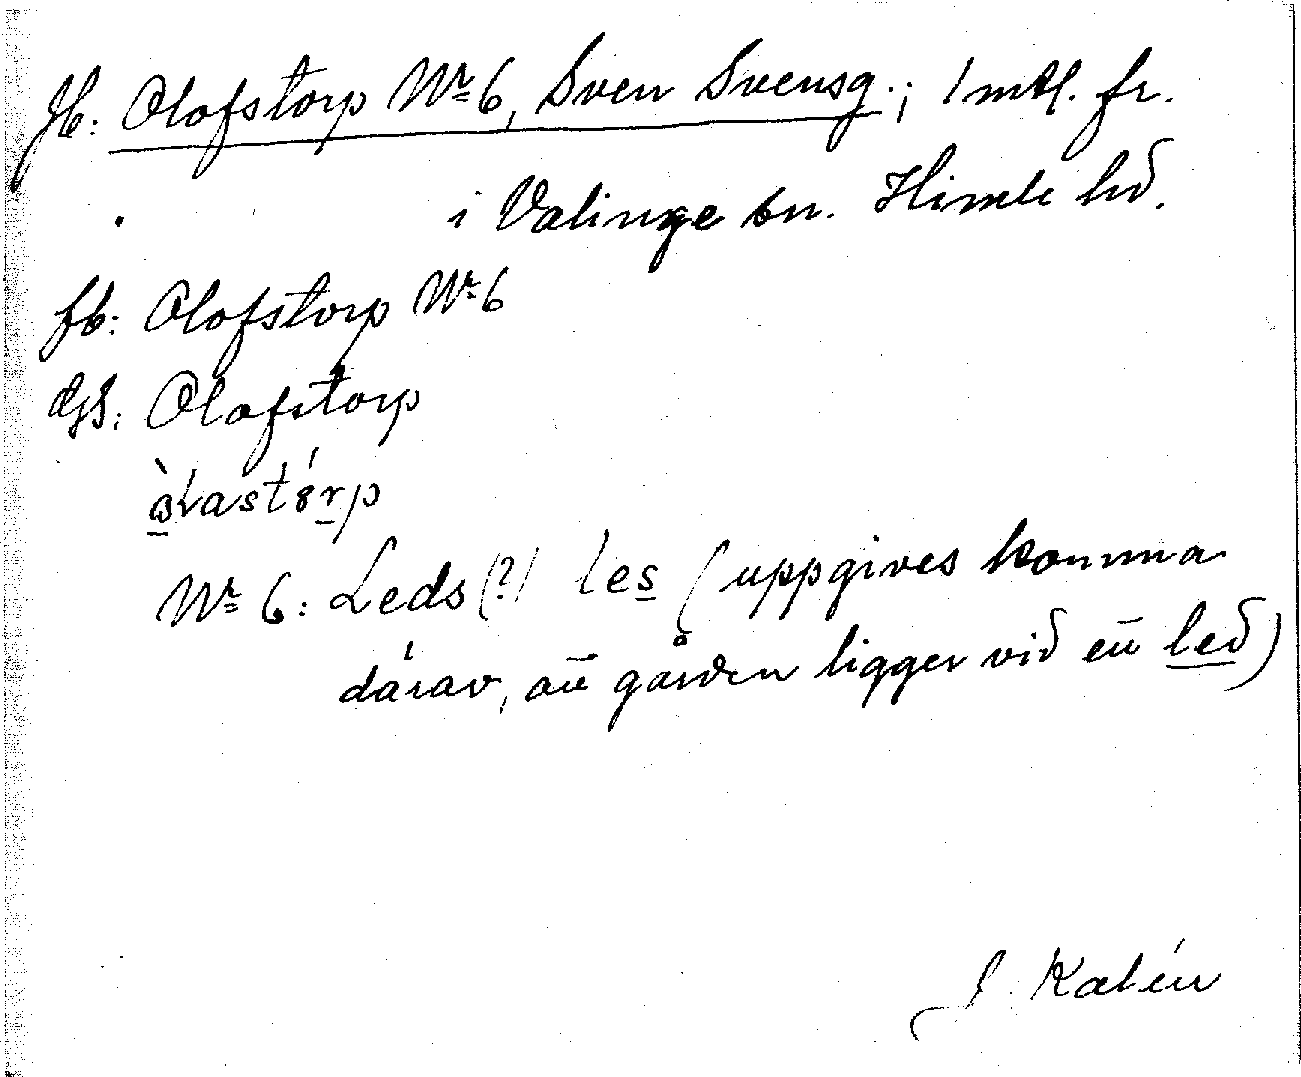 Jb: Olofstorp Nr 6, Sven Svensg.; 1 mtl. fr.
i Valinge sn. Himle hd.
fb: Olofstorp Nr 6
dgs: Olofstorp
Nr 6: Leds (?) les (uppgives komma
därav, att gården ligger vid ett led)
J. Kalén